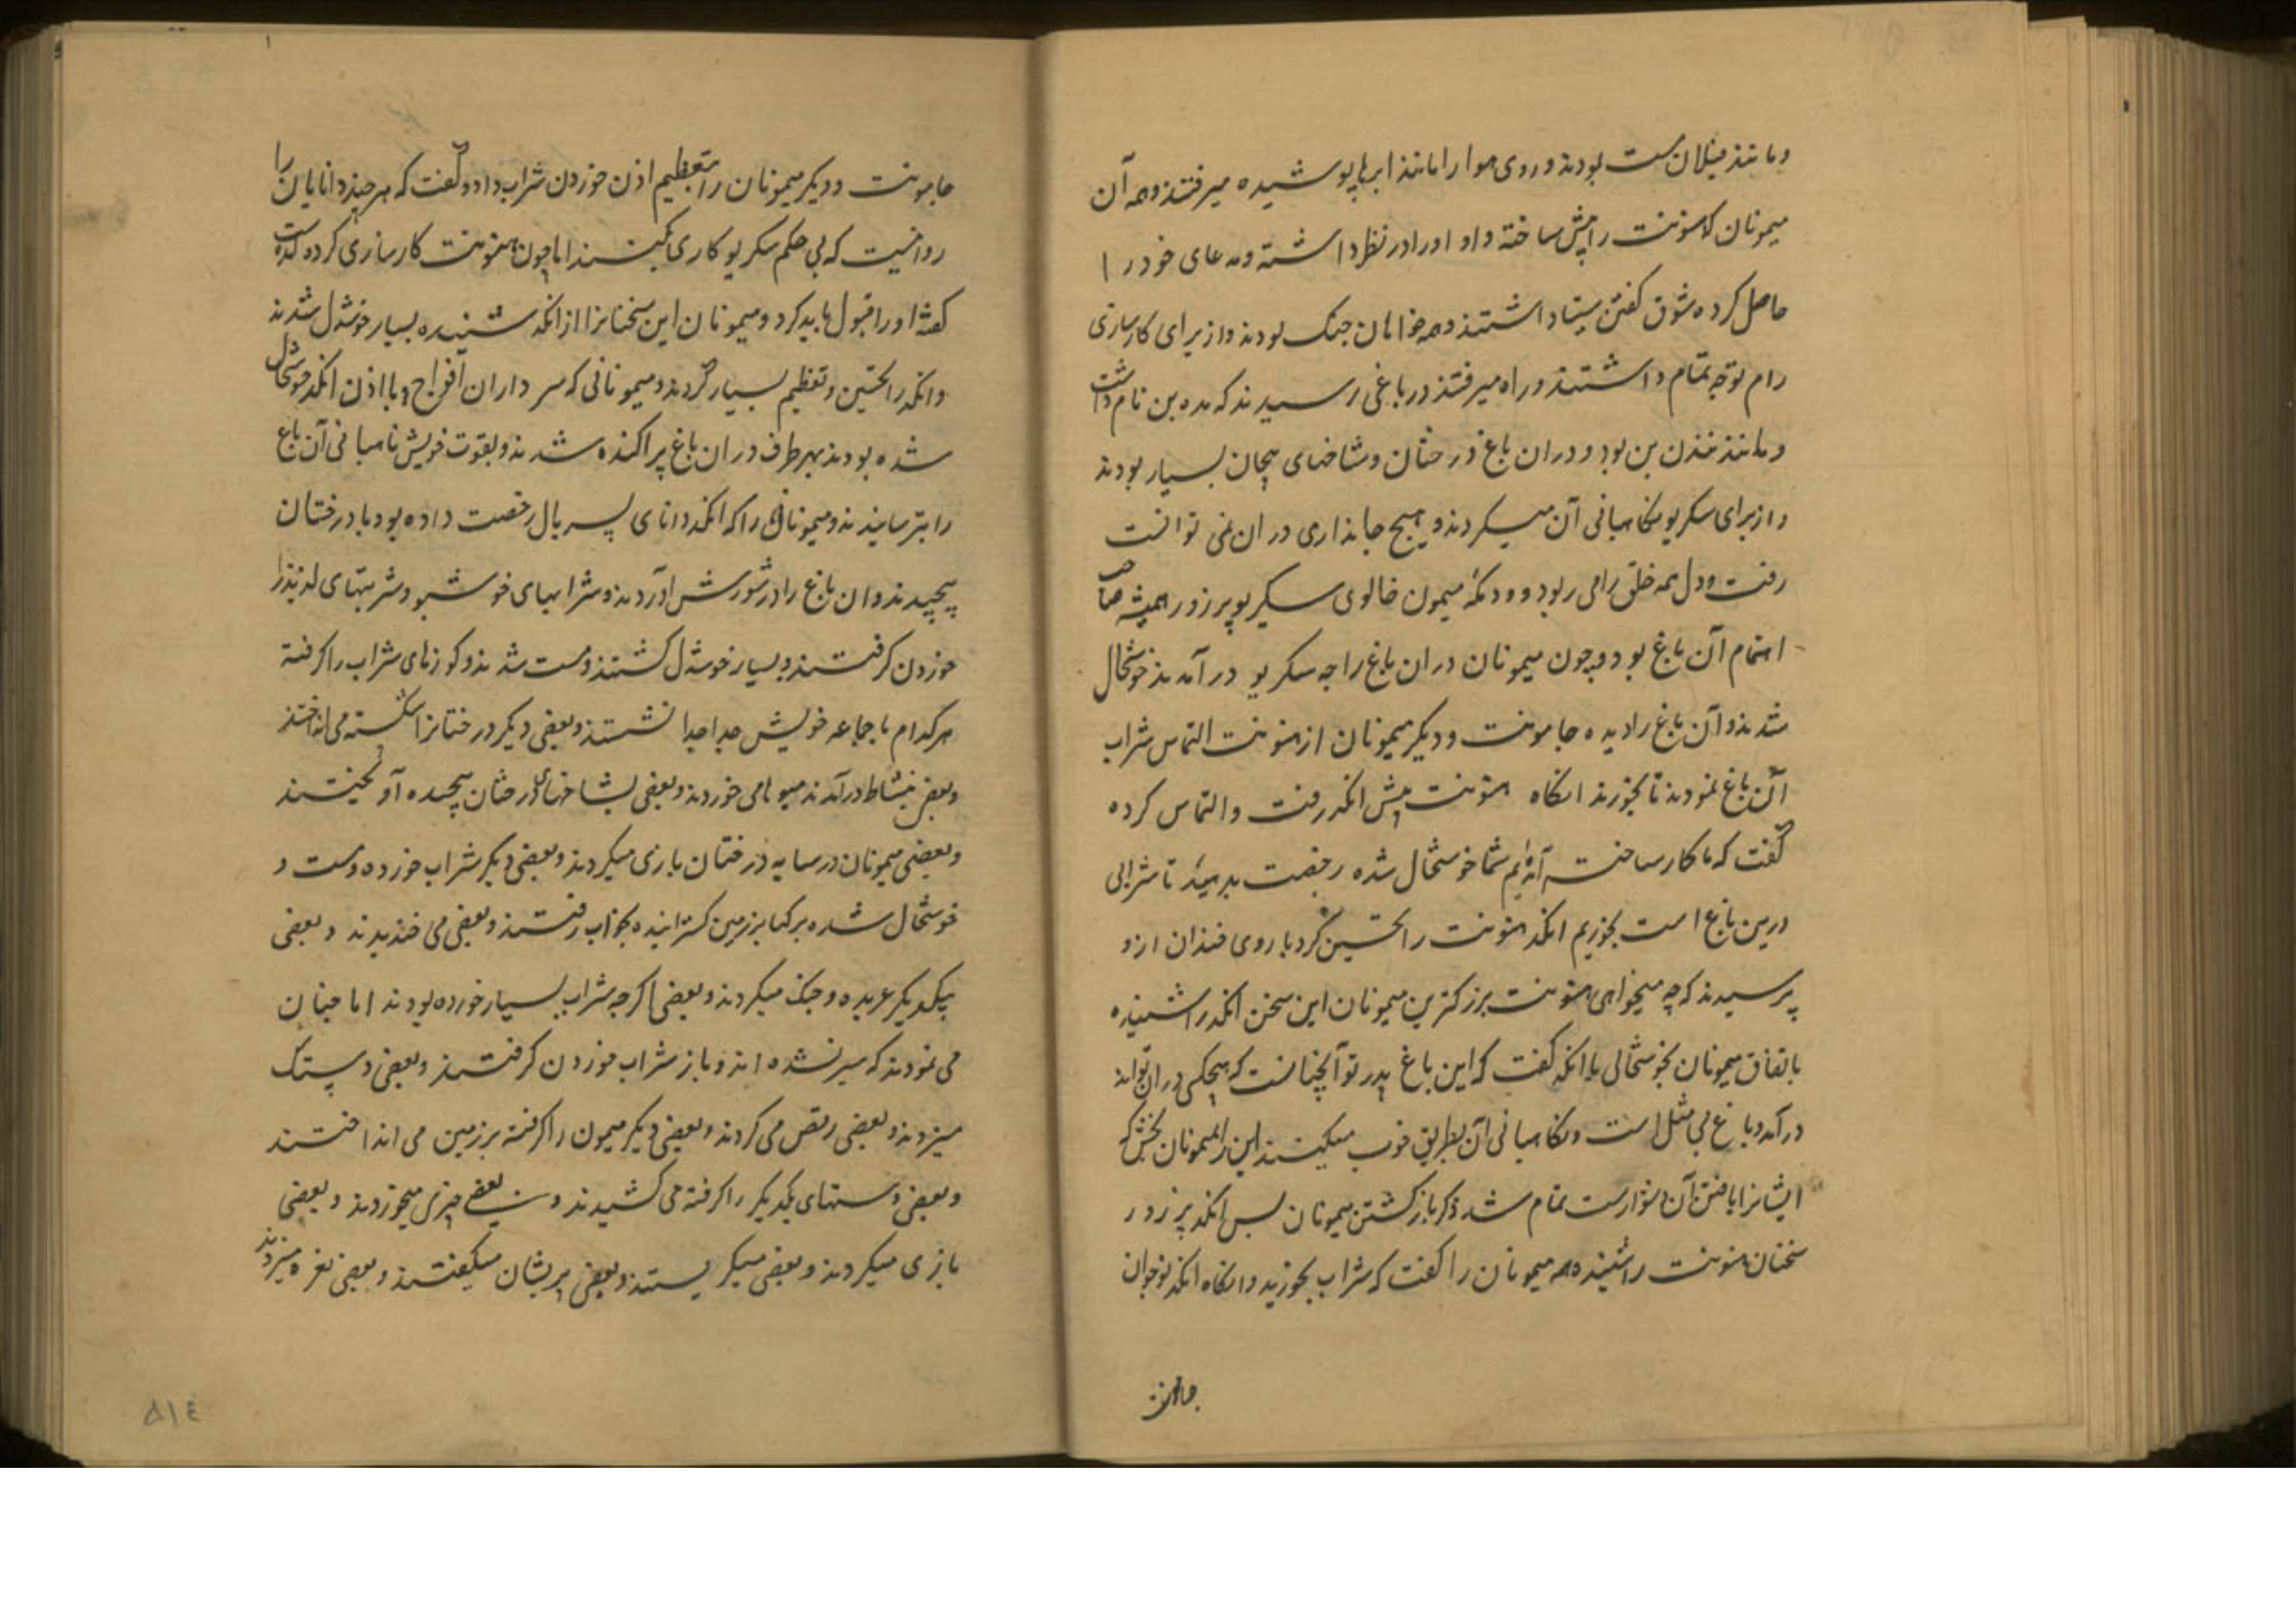 و مانند فیلان مست بودند و روی هوا را مانند ابرها پوشیده میرفتند و همه آن
میمونان که هنونت را پیش ساخته و او را در نظر داشته و مدعای خود را
حاصل کرده شوق گفتن سیتا داشتند و همه خواهان جنک بودند و از برای کارسازی
رام توجه تمام داشتند و راه میرفتند در باغی رسیدند که مده بن نام داشت
و مانند نندن بن بود و در ان باغ درختان و شاخهای پیچان بسیار بودند
و از برای سکریو نکاهبانی آن میکردند و هیچ جانداری در ان نمی توانست
رفت و دل همه خلق را می ربود و ودمکه میمون خالوی سکریو پر زور همیشه صاحب
اهتمام آن باغ بود و چون میمونان در ان باغ راجه سکریو در آمدند خوشحال
شدند و آن باغ را دیده جامونت و دیکر میمونان از هنونت التماس شراب
آن باغ نمودند تا بخورند انکاه هنونت پیش انکد رفت و التماس کرده
گفت که ما کار ساخته آمده ایم شما خوشحال شده رخصت بدهید تا شرابی
درین باغ است بخوریم انکد هنونت را تحسین کرد با روی خندان ازو
پرسیدند که چه میخواهی هنونت بزرکترین میمونان این سخن انکد را شنیده
باتفاق میمونان بخوشحالی با انکد گفت که این باغ پدر تو آنچنانست که هیچکس در ان تواند
درآمد و باغ بی مثل است و نکاهبانی آن بطریق خوب میکنند این را بمیمونان بخش که
ایشانرا یافتن آن دشوارست تمام شد ذکر بازکشتن میمونان پس انکد پر زور
سخنان هنونت را شنیده همه میمونان را گفت که شراب بخورید و انکاه انکد نوجوان
جامونت
جامونت و دیکر میمونان را بتعظیم اذن خوردن شراب داد و گفت که هر چند دانایان را
روا نیست که بی حکم سکریو کاری بکنند اما چون هنونت کارسازی کرده آمده است
گفته او را قبول باید کرد و میمونان این سخنانرا از انکد شنیده بسیار خوشدل شدند
و انکد را تحسین و تعظیم بسیار کردند و میمونانی که سرداران افواج و با اذن انکد خوشحال
شده بودند بهر طرف در ان باغ پراکنده شدند و بقوت خویش نکاهبانی آن باغ
را بترسانیدند و میمونان را که انکد دانای پسر بال رخصت داده بود با درختان
پیچیدند و ان باغ را در شورش آوردند و شرابهای خوشبو و شربتهای لذیذ را
خوردن کرفتند و بسیار خوشدل کشتند و مست شدند و کوزهای شراب را کرفته
هرکدام با جماعه خویش جدا جدا نشستند و بعضی دیکر درختانرا شکسته می انداختند
و بعضی بنشاط درآمدند میوها می خوردند و بعضی بشاخهای درختان پیچیده آویختند
و بعضی میمونان در سایه درختان بازی میکردند و بعضی دیکر شراب خورده و مست و
خوشحال شده برکها بر زمین کسترانیده بخواب رفتند و بعضی می خندیدند و بعضی
بیکدیکر عربده و جنک میکردند و بعضی اکرچه شراب بسیار خورده بودند اما چنان
می نمودند که سیر نشده اند و باز شراب خوردن کرفتند و بعضی دستک
میزدند و بعضی رقص می کردند و بعضی دیکر میمون را کرفته بر زمین می انداختند
و بعضی دستهای یکدیکر را کرفته می کشیدند و بعضی چیزی میخوردند و بعضی
بازی میکردند و بعضی میکریستند و بعضی پریشان میکفتند و بعضی نعره میزدند
۵۱۴